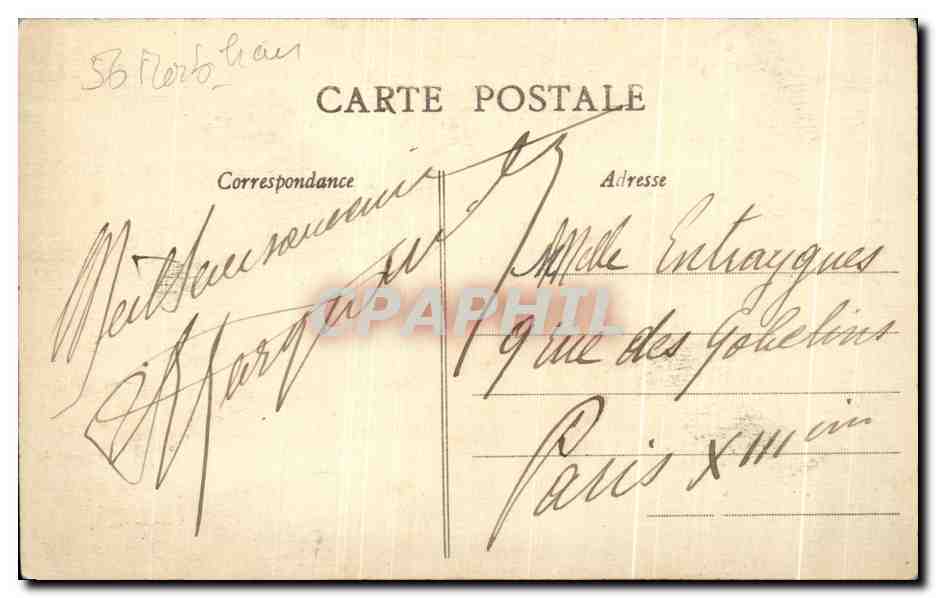 56 Morbihan
CARTE POSTALE
Correspondance
Adresse
Meilleurs souvenirs
Melle Entraygues
9 rue des Gobelins
Paris XIIIème
CPAPHIL